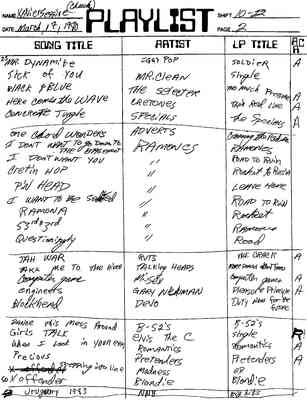 NAME XAVIER
PLAYLIST
SHIFT 10-12
DATE March 1st, 1980
PAGE 2
SONG TITLE ARTIST LP TITLE
MR DYNAMITE IGGY POP SOLDIER A
SICK OF YOU MR. CLEAN Single
BLACK & BLUE THE SELECTER Too much Pressure A
Here comes the WAVE CRETONES A
CONCRETE Jungle SPECIALS The Specials A
One Chord WONDERS ADVERTS Crossing the
I DONT WANT TO go Down TO THE BASEMENT RAMONES RAMONES
I DON'T WANT YOU " ROAD TO RUIN
Cretin HOP " Rocket to Russia
PIN HEAD " LEAVE HOME
I WANT TO BE Sedated " ROAD TO RUIN
RAMONA " Rocket
53rd & 3rd " Ramones
Questioningly " Road
JAH WAR RUTS THE CRACK A
TALKING HEADS
Computer game Computer games A
Engineers GARY NEWMAN Pleasure Principle A
Blockhead DEVO Duty Now for the
DANCE this Mess Around B-52's B-52's
Girls TALK Elvis the C Single R
When I Look in YOUR eyes Romantics Romantics A
Precious Pretenders Pretenders A
Madness EP
X offender Blondie Blondie